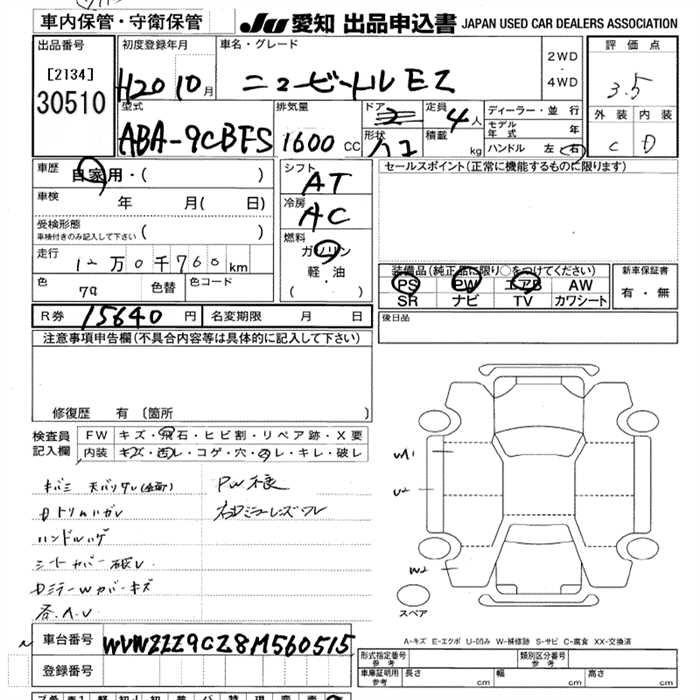 車内保管・守衛保管
JU 愛知 出品申込書 JAPAN USED CAR DEALERS ASSOCIATION
出品番号
[2134]
30510
初度登録年月
H20 10月
車名・グレード
ニュービートル EZ
2WD
・
4WD
評価点
3.5
外装 内装
C D
型式
ABA-9CBFS
排気量
1600 CC
ドア
形状
定員
4人
積載
kg
ディーラー・並行
モデル年式 年
ハンドル 左 (右)
車歴
自家用・( )
車検
年 月( 日)
受検形態
車検付きのみ記入して下さい ( )
走行
12万0千760 km
色
色替
色コード
シフト
AT
冷房
AC
燃料
ガソリン
軽・油
( ・ )
セールスポイント(正常に機能するものに限ります)
装備品(純正品に限り○をつけてください)
PS PW エアB AW
SR ナビ TV カワシート
新車保証書
有・無
R券 15640円 名変期限 月 日
後日品
注意事項申告欄(不具合内容等は具体的に記入して下さい)
修復歴 有 [箇所 ]
検査員
記入欄
FW キズ・飛石・ヒビ割・リペア跡・X要
内装 キズ・汚レ・コゲ・穴・スレ・キレ・破レ
PW不良
ハンドルハゲ
シートカバー破レ
W1
U2
W2
スペア
A-キズ E-エクボ U-凹み W-補修跡 S-サビ C-腐食 XX-交換済
車台番号 WVWZZZ9CZ8M560515
登録番号
形式指定番号
参考
類別区分番号
参考
車庫証明用
参考
長さ cm 幅 cm 高さ cm